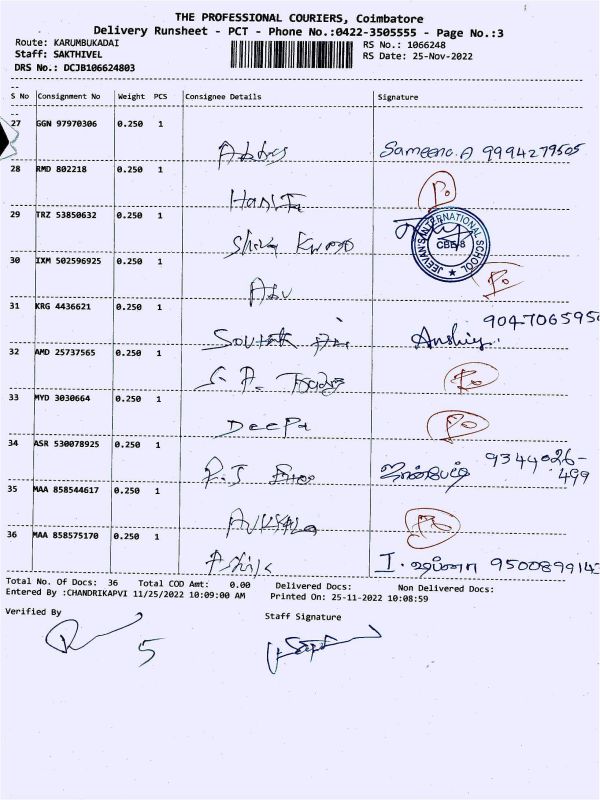 THE PROFESSIONAL COURIERS, Coimbatore
Delivery Runsheet - PCT - Phone No.:0422-3505555 - Page No.:3
Route: KARUMBUKADAI RS No.: 1066248
Staff: SAKTHIVEL RS Date: 25-Nov-2022
DRS No.: DCJB106624803
S No Consignment No Weight PCS Consignee Details Signature
27 GGN 97970306 0.250 1
Sameena.A 9994279505
28 RMD 802218 0.250 1
Po
29 TRZ 53850632 0.250 1
JEEVAN'S INTERNATIONAL SCHOOL
CBE-8
30 IXM 502596925 0.250 1
Abu Po
31 KRG 4436621 0.250 1
904706595
32 AMD 25737565 0.250 1
Po
33 MYD 3030664 0.250 1
Deepa Po
34 ASR 530078925 0.250 1
9344026-
499
35 MAA 858544617 0.250 1
Po
36 MAA 858575170 0.250 1
I. 9500899142
Total No. Of Docs: 36 Total COD Amt: 0.00 Delivered Docs: Non Delivered Docs:
Entered By :CHANDRIKAPVI 11/25/2022 10:09:00 AM Printed On: 25-11-2022 10:08:59
Verified By Staff Signature
5